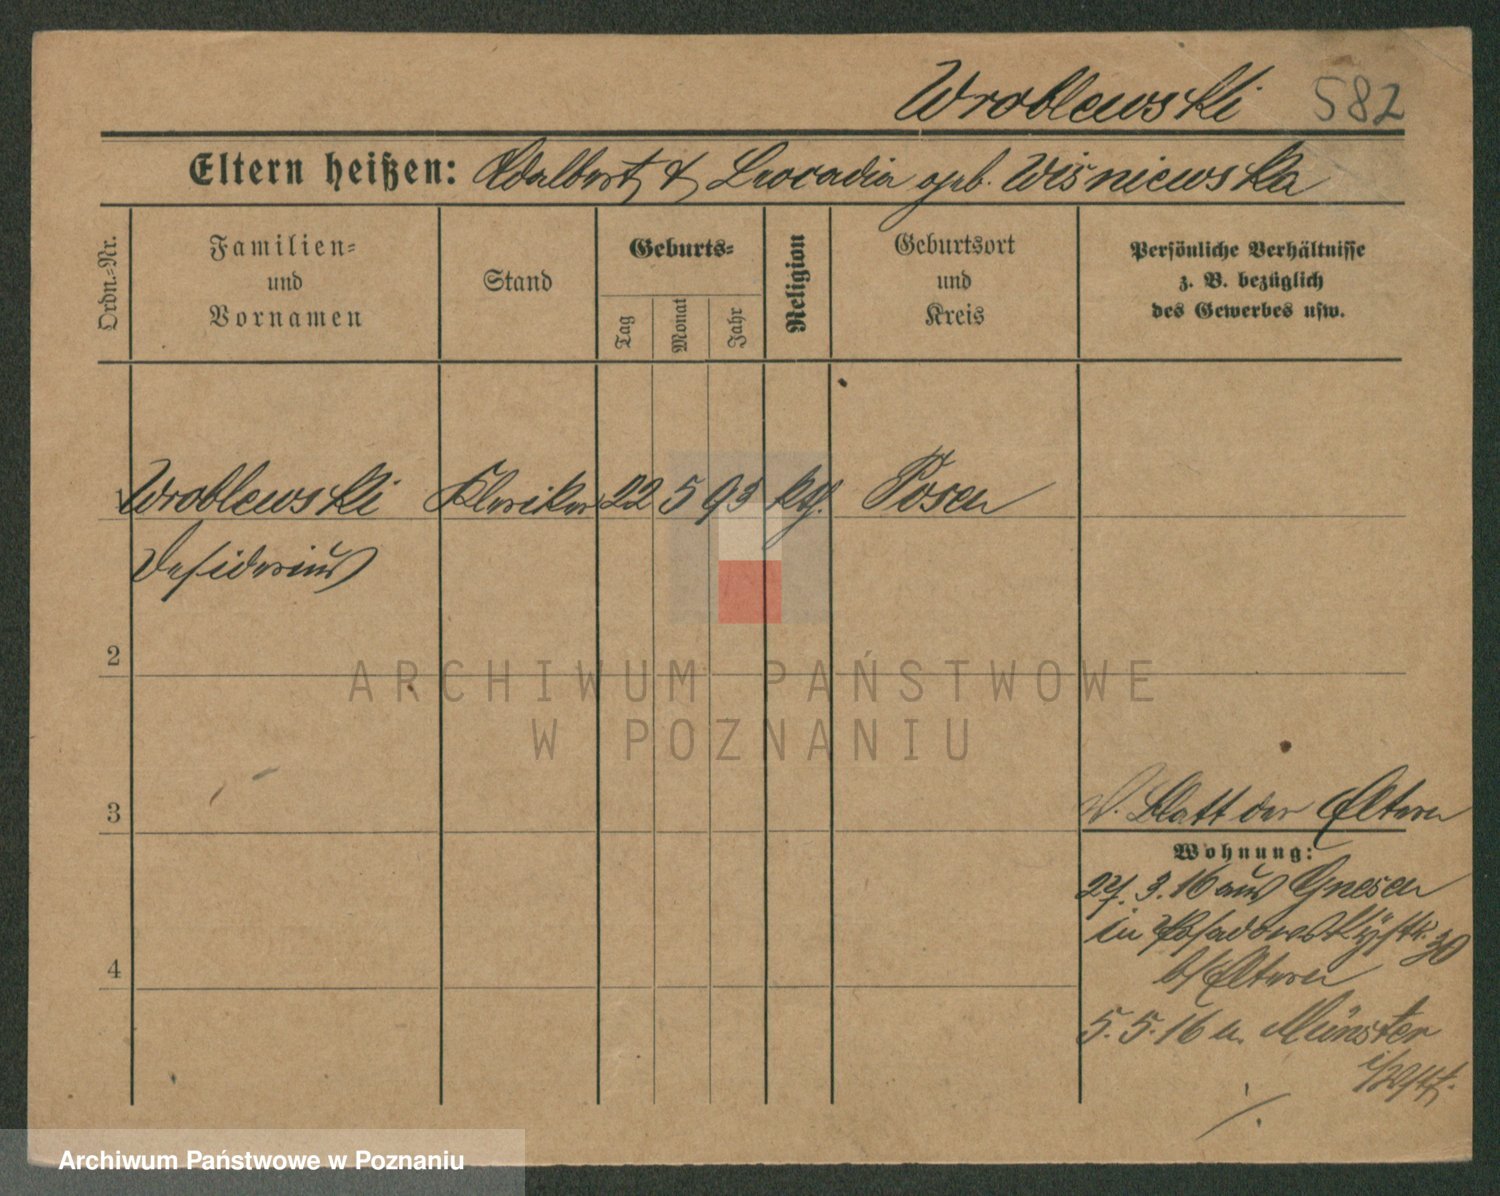 Wroblewski 582
Eltern heißen: Adalbert & Leocadia geb. Wiśniewska
Ordn.=Nr.
Familien=
und
Vornamen
Stand
Geburts=
Tag
Monat
Jahr
Religion
Geburtsort
und
Kreis
Persönliche Verhältnisse
z. B. bezüglich
des Gewerbes usw.
Wroblewski Kleriker 22 5 93 kth. Posen
Desiderius
2
3
4
V. Blatt der Eltern
Wohnung:
27. 3. 16 aus Gnesen
in Posadowskystr. 30
b/Eltern
5. 5. 16 n. Münster
i/Westf.
ARCHIWUM PAŃSTWOWE
W POZNANIU
Archiwum Państwowe w Poznaniu